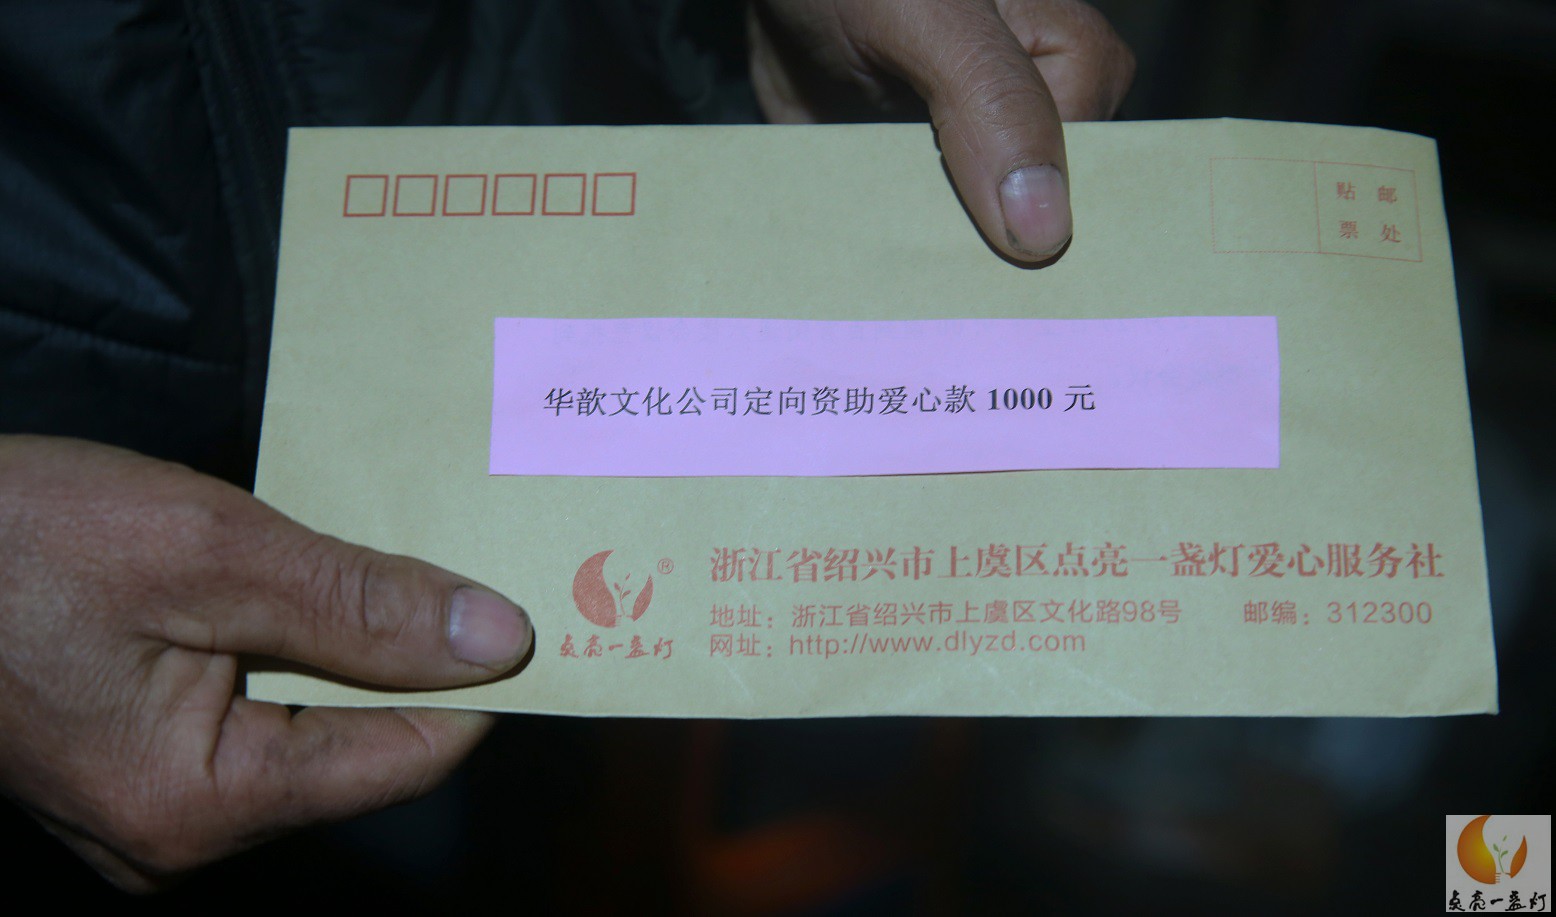 贴 邮
票 处
华歆文化公司定向资助爱心款 1000 元
®
浙江省绍兴市上虞区点亮一盏灯爱心服务社
地址：浙江省绍兴市上虞区文化路98号 邮编：312300
网址：http://www.dlyzd.com
点亮一盏灯
点亮一盏灯